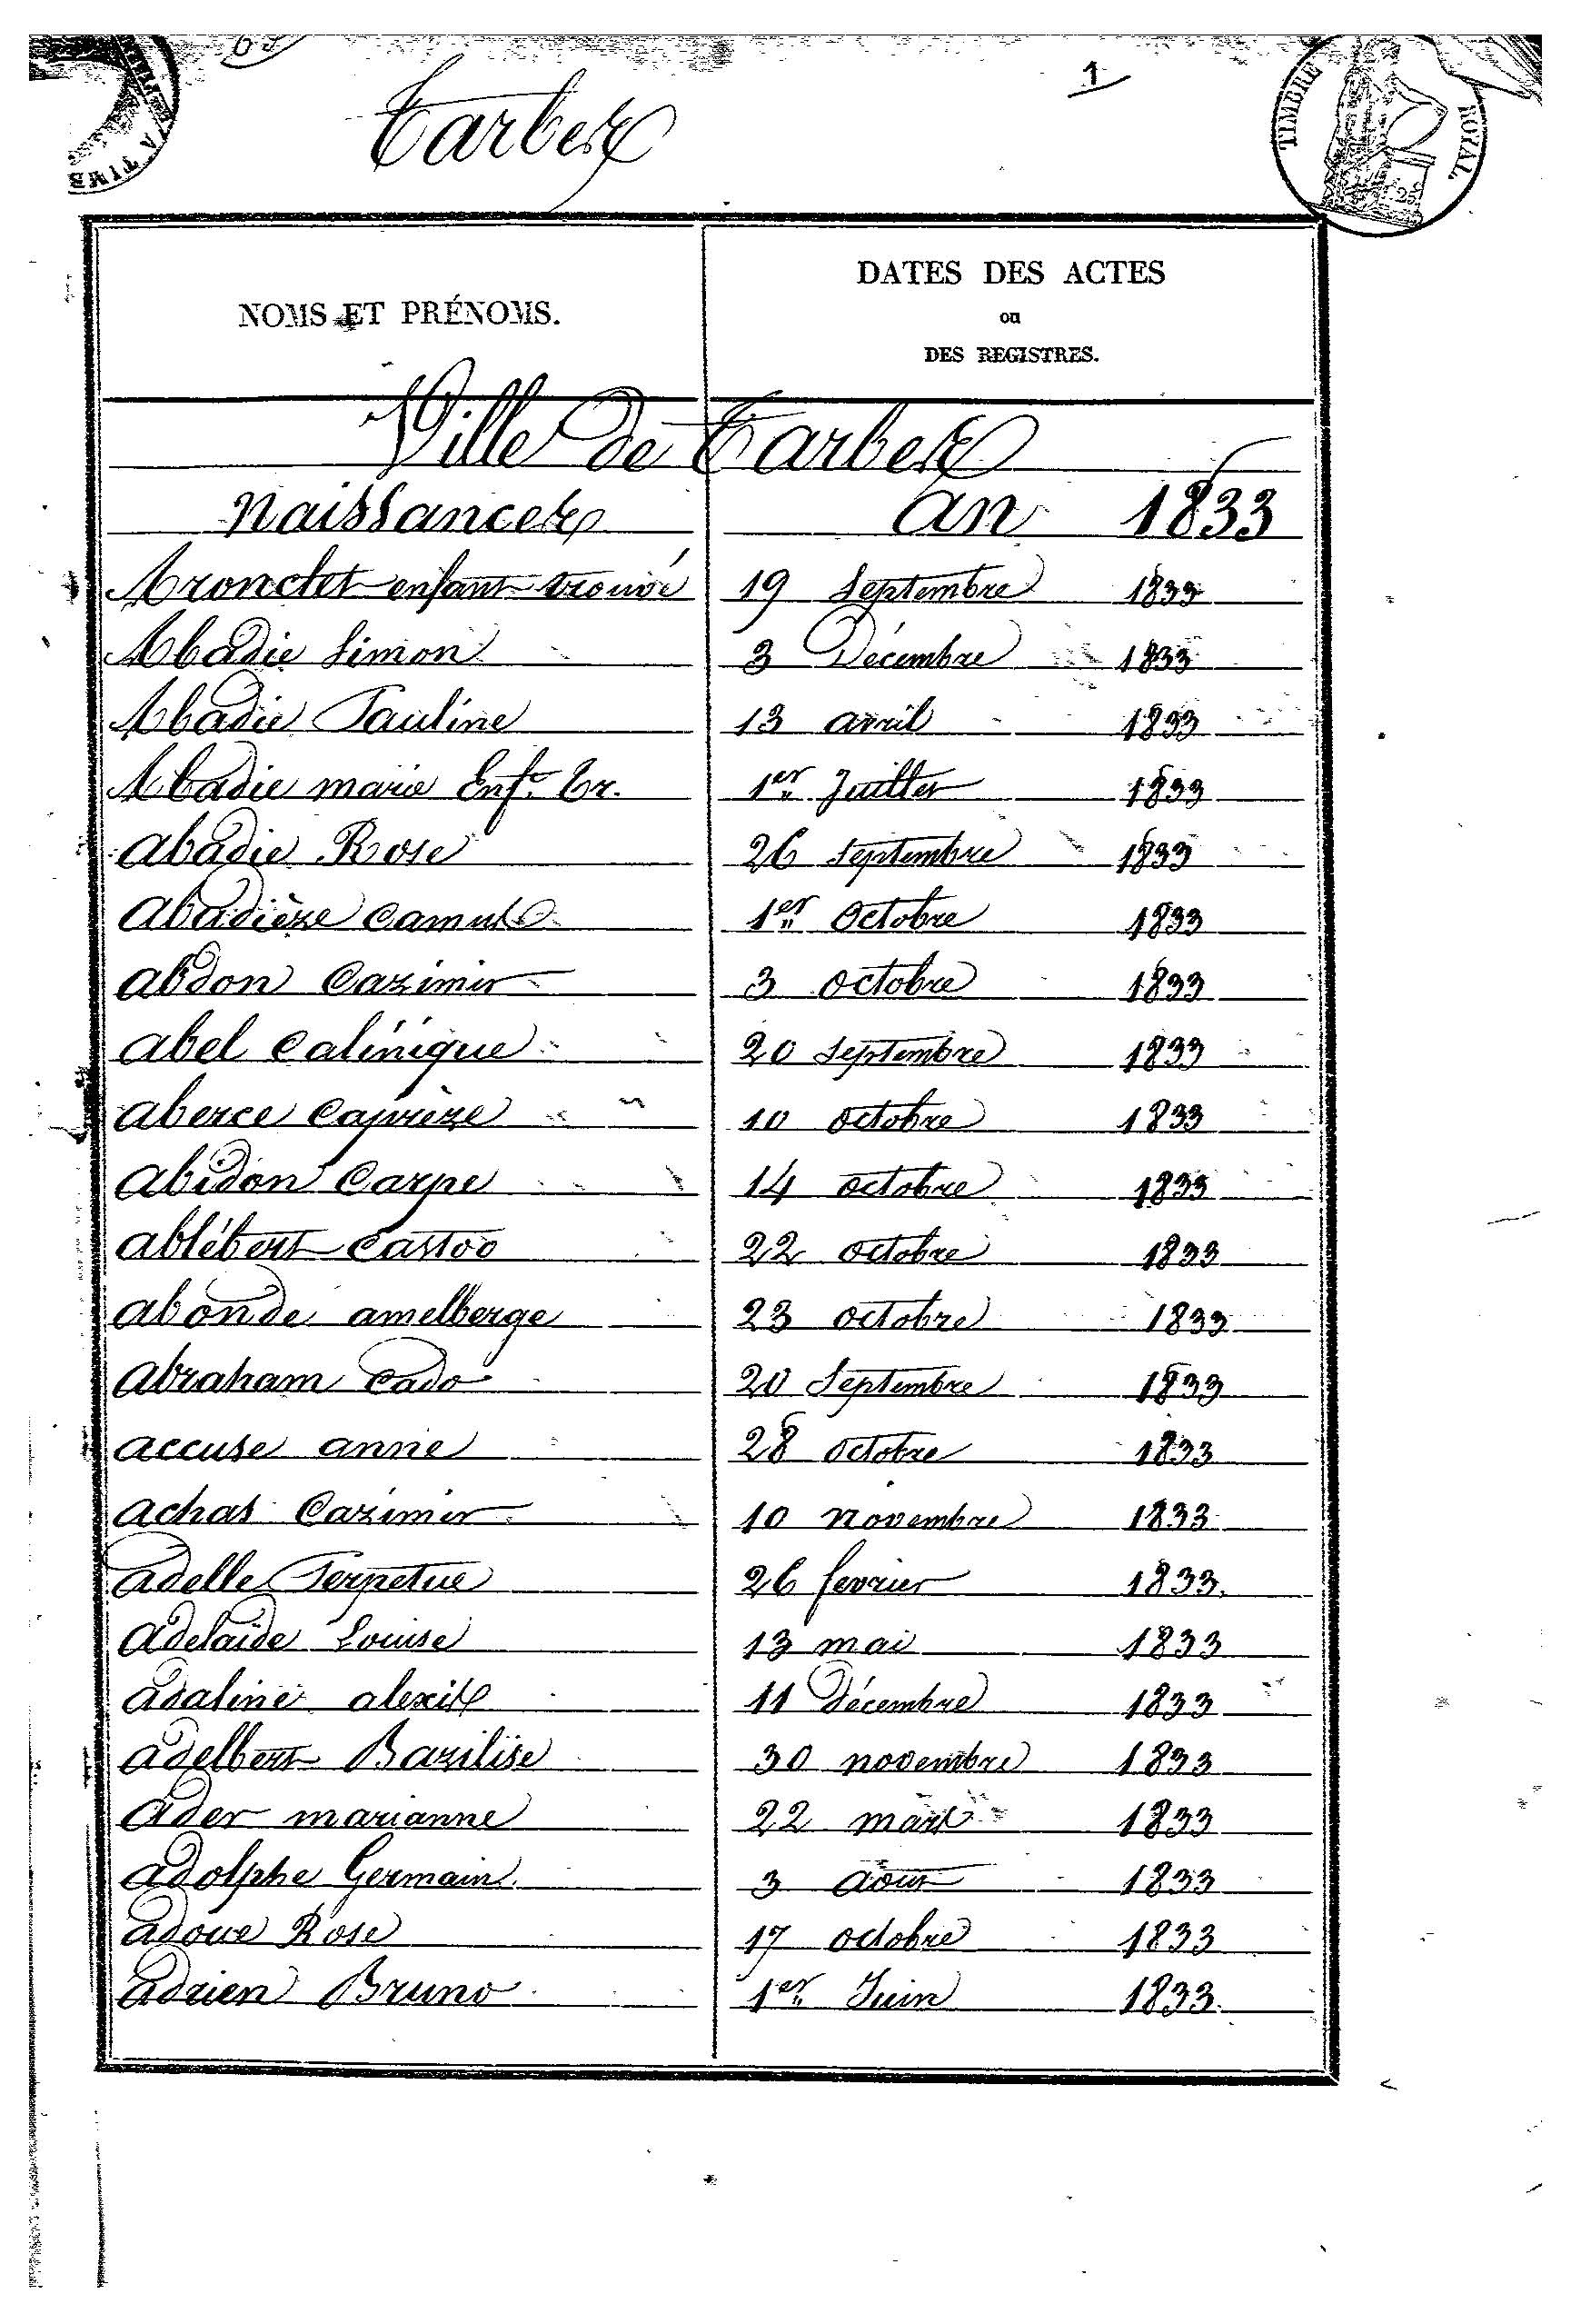 Tarbes
1
TIMBRE ROYAL
NOMS ET PRÉNOMS.
DATES DES ACTES
ou
DES REGISTRES.
Ville de Tarbes
Naissances an 1833
Aronctet enfant trouvé 19 Septembre 1833
Abadie Simon 3 Décembre 1833
Abadie Pauline 13 avril 1833
Abadie marie Enft. Tr. 1er Juillet 1833
abadie Rose 26 Septembre 1833
abadièze Camus 1er Octobre 1833
abdon Cazimir 3 octobre 1833
abel Calinique 20 Septembre 1833
aberce Caprèze 10 octobre 1833
abidon Carpe 14 octobre 1833
ablébert Castoo 22 octobre 1833
abonde amelberge 23 octobre 1833
abraham Cado 20 Septembre 1833
accuse anne 28 octobre 1833
achas Cazimir 10 novembre 1833
adelle Perpetue 26 fevrier 1833
adelaïde Louise 13 mai 1833
adaline alexis 11 Décembre 1833
adelbert Bazilise 30 novembre 1833
ader marianne 22 mars 1833
adolphe Germain 3 aout 1833
adoue Rose 17 octobre 1833
adrien Bruno 1er Juin 1833